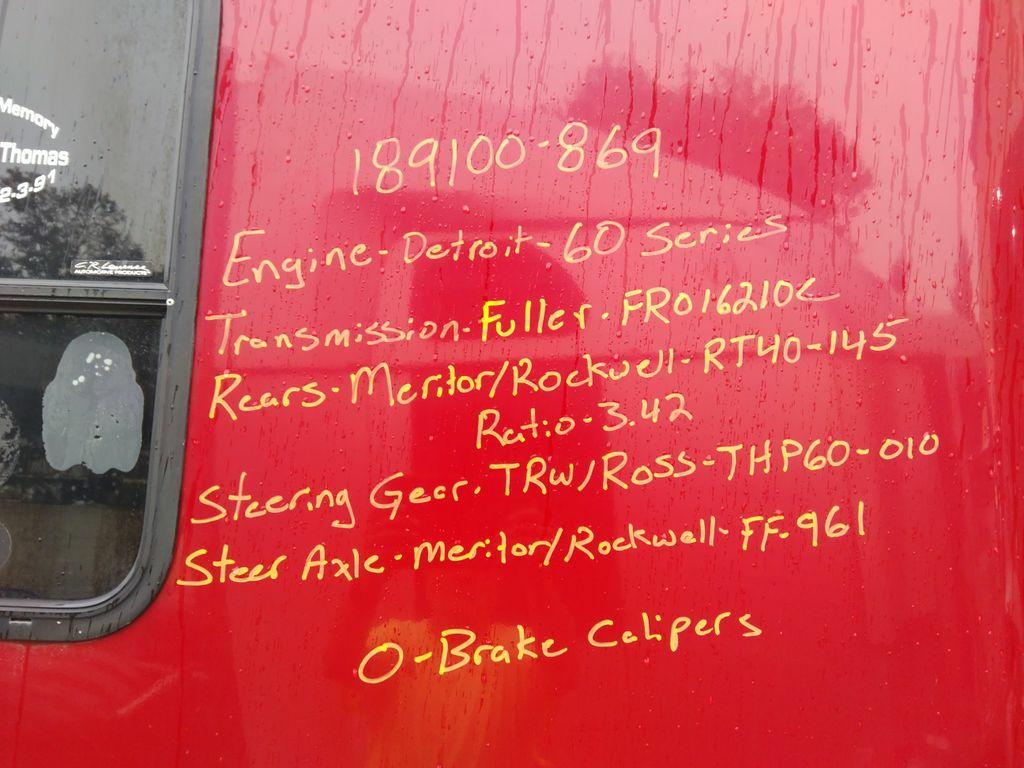 Memory
Thomas
2-3-91
C.R. Laurence
AUTOMOTIVE PRODUCTS
189100-869
Engine-Detroit-60 Series
Transmission-Fuller-FRO16210C
Rears-Meritor/Rockwell-RT40-145
Ratio-3.42
Steering Gear-TRW/Ross-THP60-010
Steer Axle-Meritor/Rockwell-FF-961
0-Brake Calipers